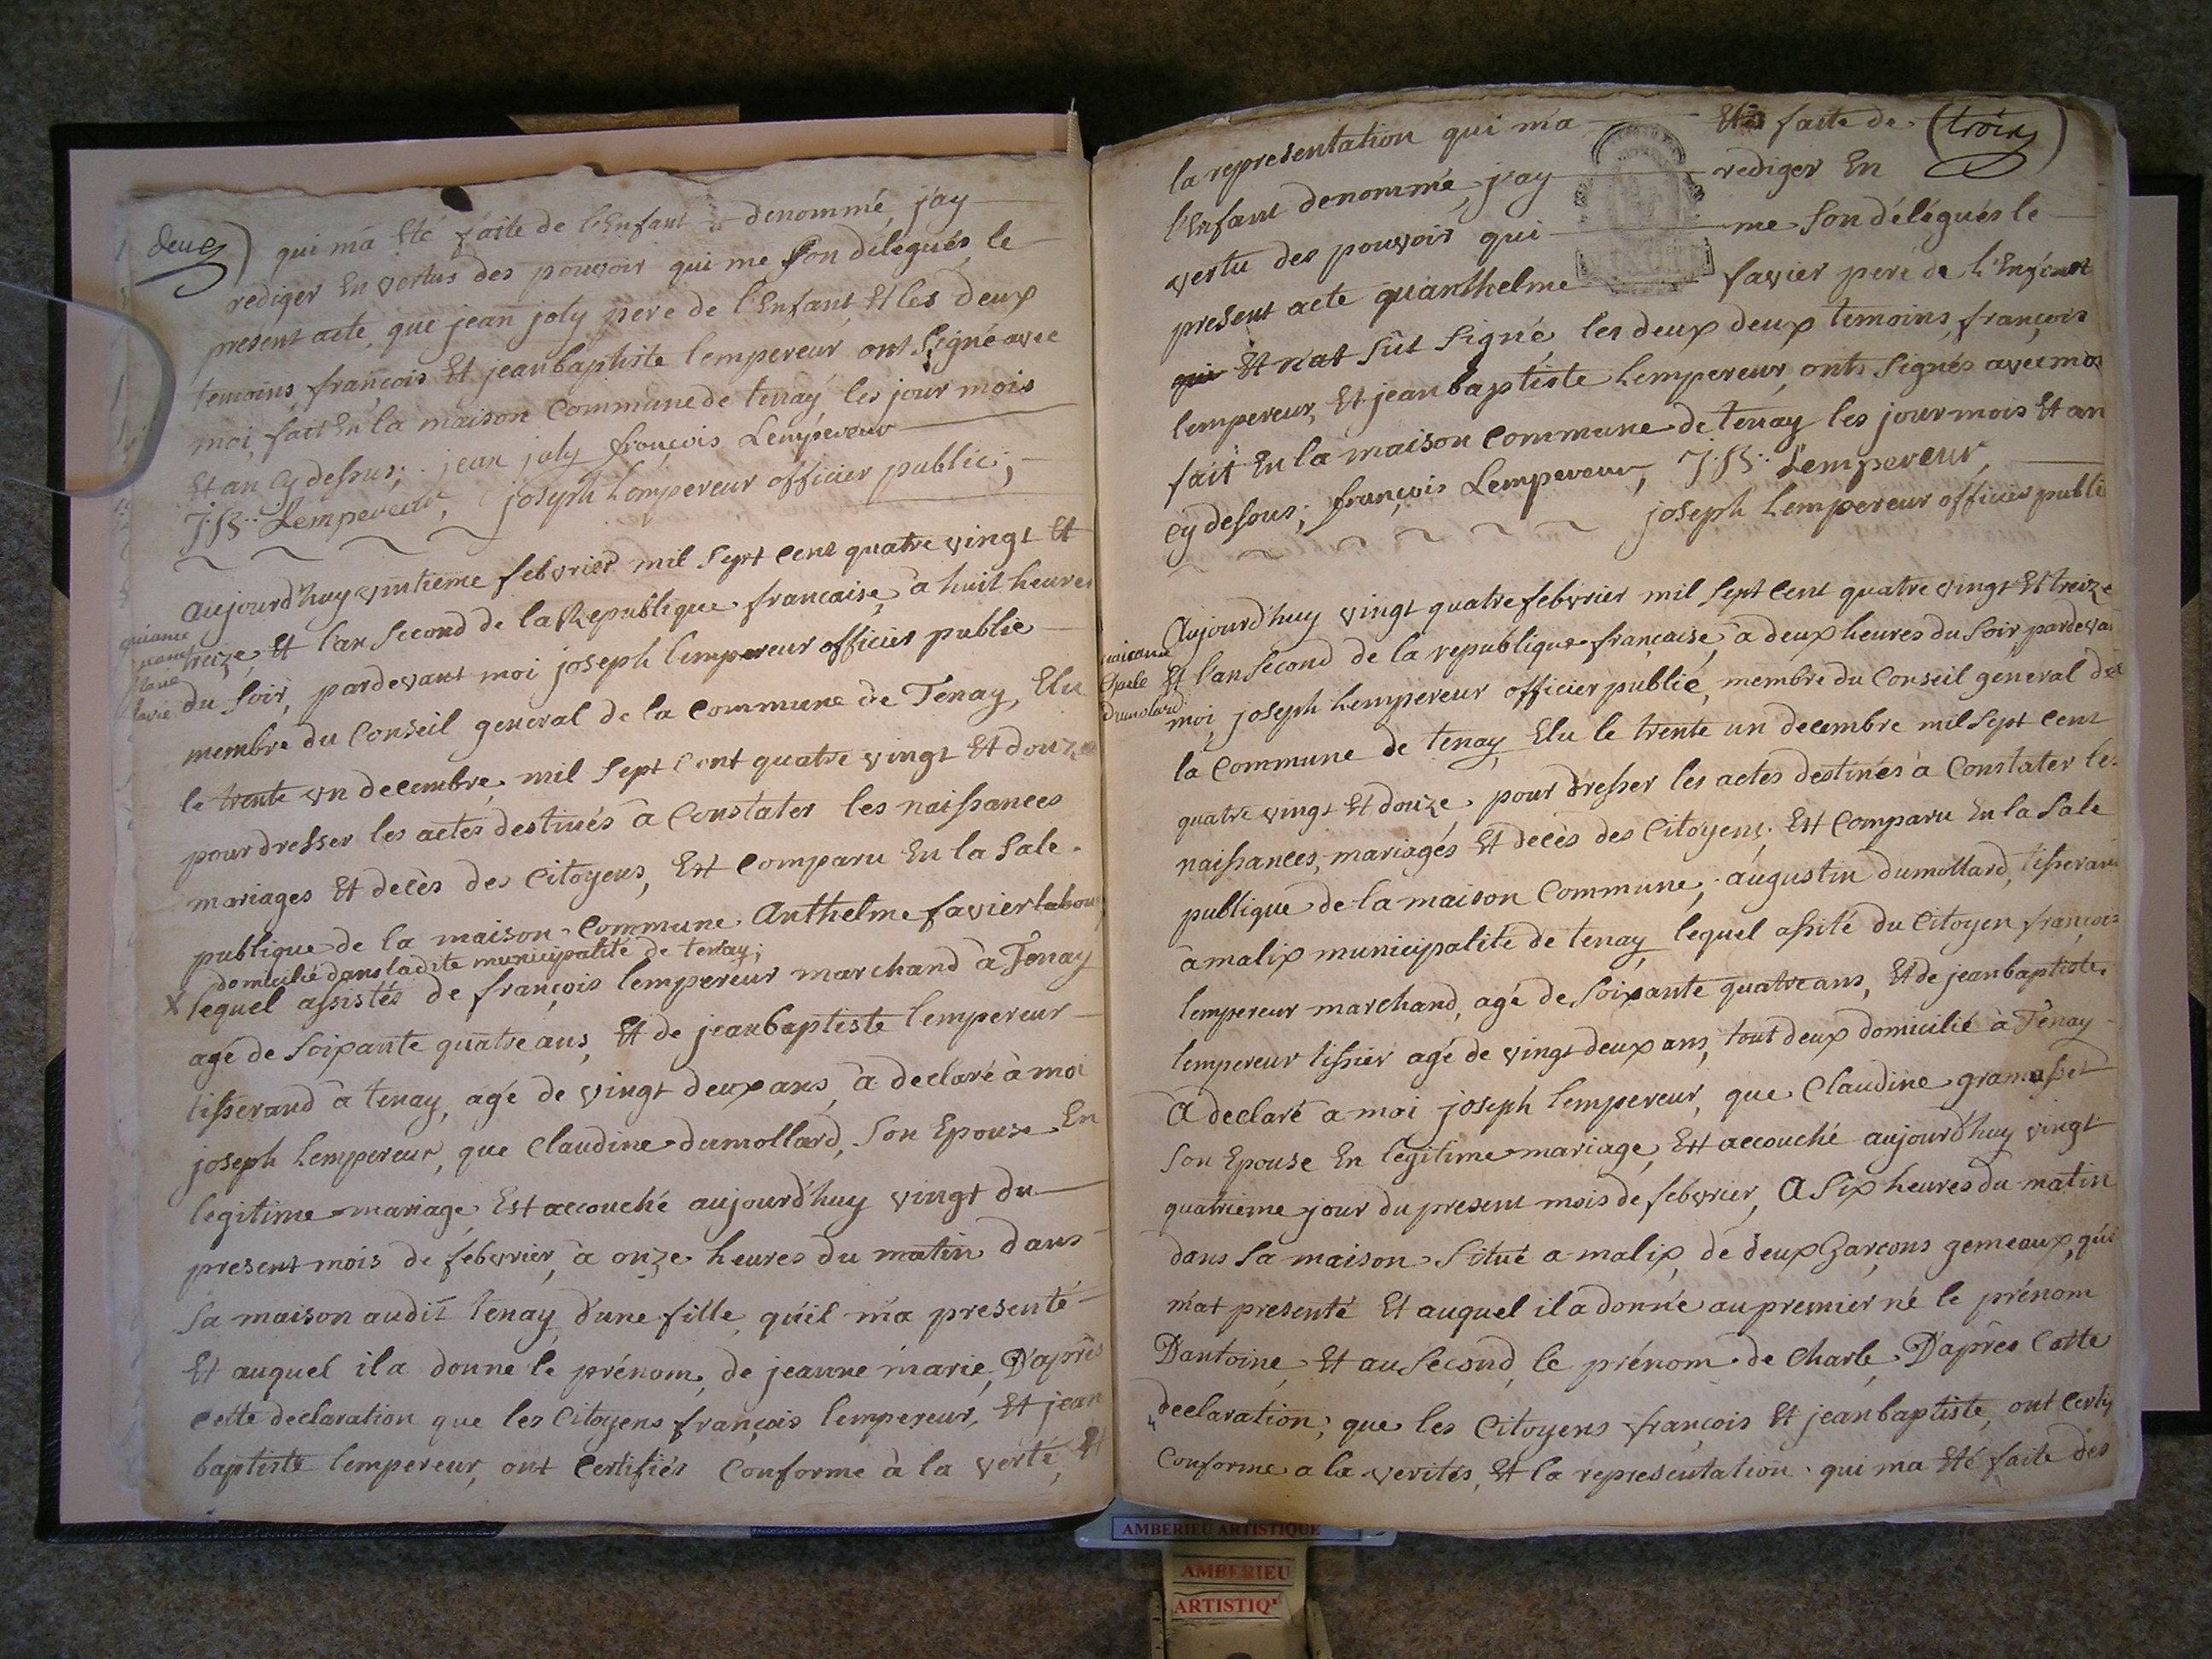 deux) qui m'a Eté faite de l'Enfant denommé, j'ay
rediger En vertus des pouvoir qui me son délegués, le
present acte, que jean joly pere de l'Enfant, Et les deux
temoins, françois Et jean baptiste lempereur ont Signé avec
moi, fait En la maison Commune de tenay, les jour mois
Et an Cy dessus; jean joly françois Lempereur
J:B:: Lempereur, joseph Lempereur officier public;
aujourd'huy vintieme febvrier mil Sept Cent quatre vingt Et
treize, Et l'an Second de la Republique francaise, à huit heures
du Soir, pardevant moi joseph lempereur officier public
membre du Conseil general de la Commune de Tenay, Elu
le trente un decembre, mil Sept Cent quatre vingt Et douze
pour dresser les actes destinés à Constater les naissances
mariages Et decès des Citoyens, Est Comparu En la Sale
publique de la maison Commune Anthelme favier labou
domicilié dans ladite municipalité de tenay;
X lequel assistés de françois lempereur marchand à Tenay
agé de Soixante quatre ans, Et de jean baptiste lempereur
tisserand à tenay, agé de vingt deux ans, a declaré à moi
joseph Lempereur, que Claudine dumollard, Son Epouse En
legitime mariage, Est accouché aujourd'huy vingt du
present mois de febvrier, à onze heures du matin dans
Sa maison audit tenay, d'une fille, qu'il m'a presenté
Et auquel il a donne le prénom, de jeanne marie, D'après
Cette declaration que les Citoyens françois lempereur, Et jean
baptiste lempereur, ont Certifiés Conforme à la verté, Et
la representation qui m'a Eté faite de (trois)
l'Enfant denommé, j'ay rediger En
vertu des pouvoir qui me Son délégués le
present acte qu'anthelme favier pere de l'Enfant
qui Et n'at Sût Signé les deux deux temoins, françois
lempereur, Et jean baptiste Lempereur, onts Signés avec moi
fait En la maison Commune de tenay les jour mois Et an
Cy dessus; françois Lempereur, J:B:: Lempereur,
joseph Lempereur officier publi
naissance
Charle
Dumolard
Aujourd'huy vingt quatre febvrier mil Sept Cent quatre vingt Et treize
Et l'an Second de la republique française, à deux heures du Soir pardevan
moi, joseph Lempereur officier public, membre du Conseil general de
la Commune de tenay, Elu le trente un decembre mil Sept Cent
quatre vingt Et douze, pour dresser les actes destinés à Constater les
naissances, mariages Et decès des Citoyens, Est Comparu En la Sale
publique de la maison Commune, augustin dumollard, tisserand
à malix municipalité de tenay, lequel assité du Citoyen françois
lempereur marchand, agé de Soixante quatre ans, Et de jean baptiste
lempereur tissier agé de vingt deux ans, tout deux domicilié à Tenay
A declaré a moi joseph lempereur, que Claudine gramusset
Son Epouse En legitime mariage, Est accouché aujourd'huy vingt
quatrieme jour du present mois de febvrier, A Six heures du matin
dans Sa maison Situé a malix, de deux Garçons gemeaux, qu'i
m'at presenté Et auquel il a donné au premier né le prénom
D'antoine, Et au Second, le prénom de Charle, D'après Cette
declaration; que les Citoyens françois Et jean baptiste, ont Certif
Conforme a la verités, Et la representation qui ma Eté faite des
AMBERIEU ARTISTIQUE
AMBERIEU
ARTISTIQ